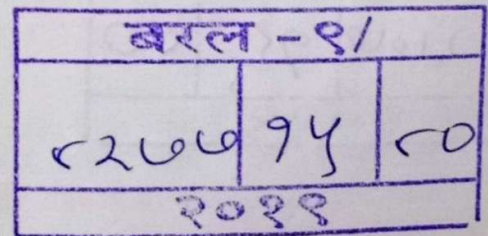 बरल -९/
८२७७ १५ ८०
२०१९